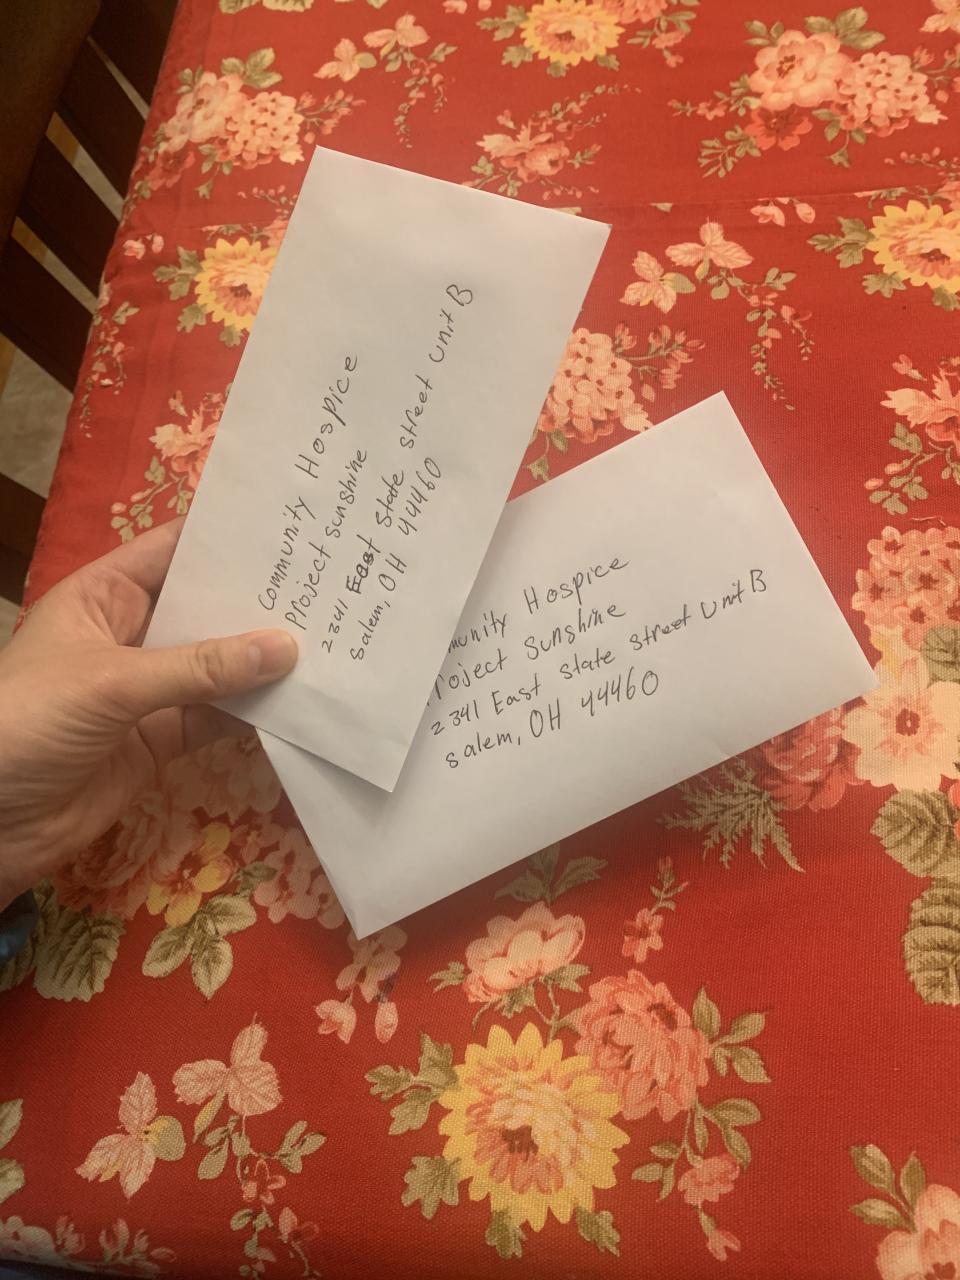 Community Hospice
Project Sunshine
2341 East State Street Unit B
Salem, OH 44460
Hospice
Sunshine
2341 East State Street Unit B
Salem, OH 44460